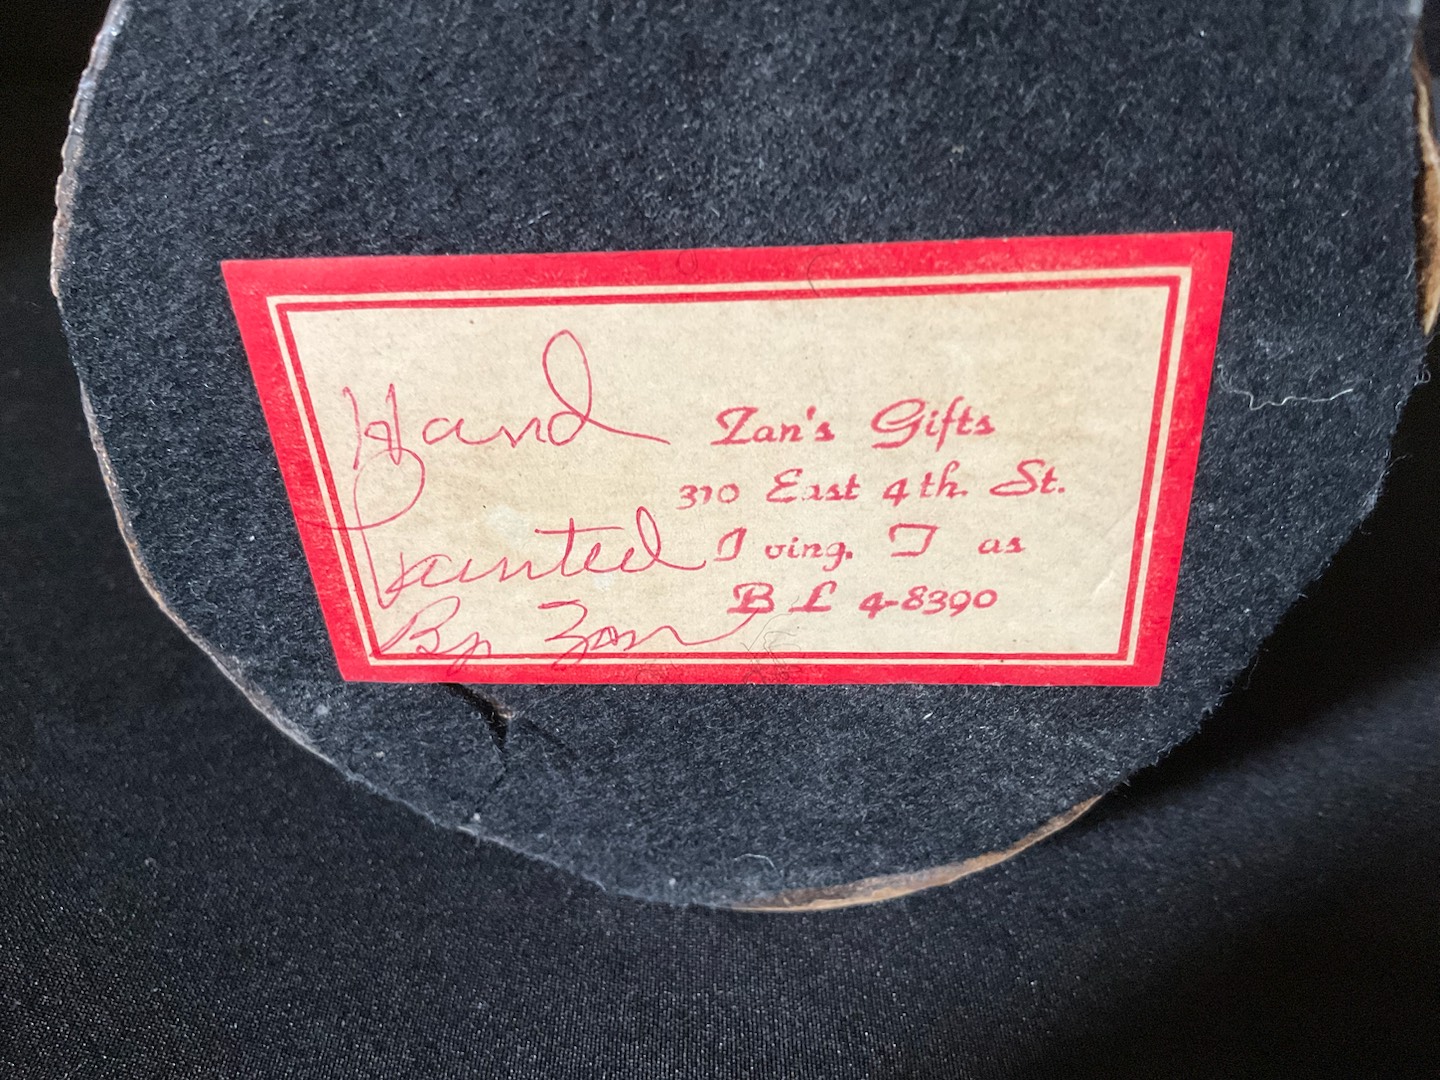 Hand
Painted
By Zan
Zan's Gifts
310 East 4th. St.
I ving. T as
B L 4-8390